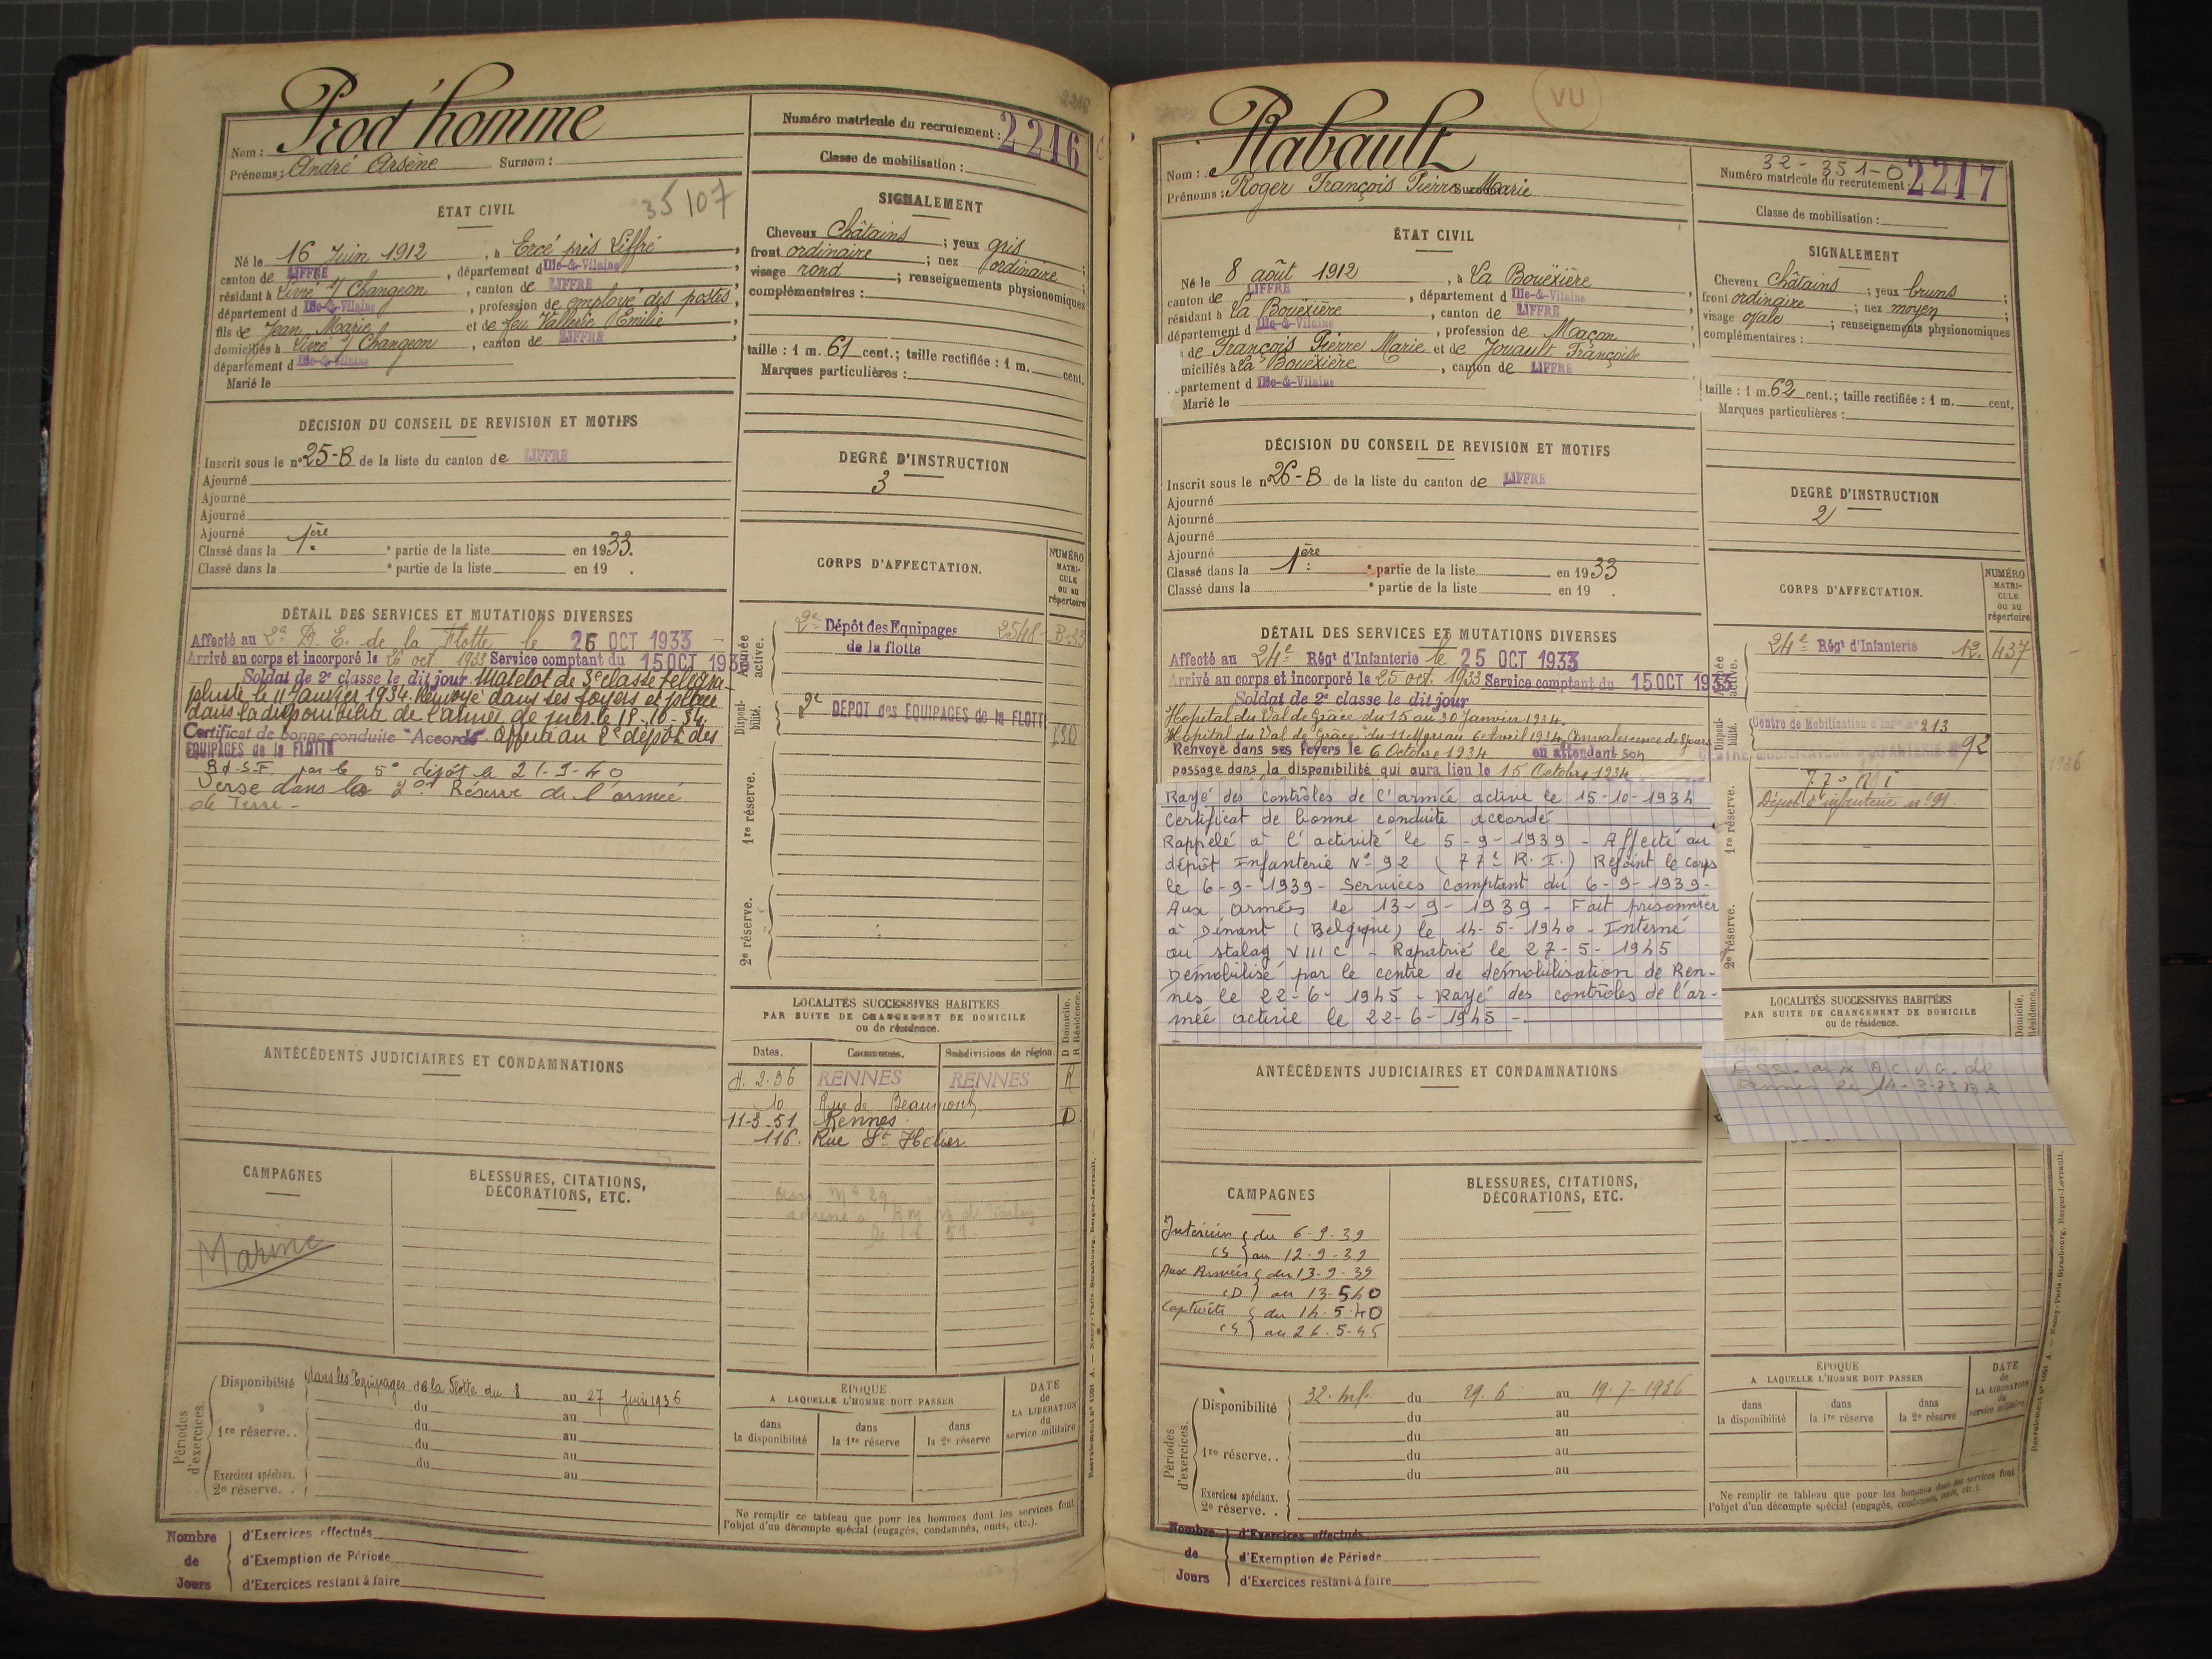 Prod'homme
Nom :
Prénoms : André Arsène Surnom :
Numéro matricule du recrutement : 2216
Classe de mobilisation :
ÉTAT CIVIL
35107
Né le 16 Juin 1912, à Ercé près Liffré,
canton de LIFFRÉ, département d Ille-&-Vilaine,
résidant à Livré s/ Changeon, canton de LIFFRÉ,
département d Ille-&-Vilaine, profession de employé des postes,
fils de Jean Marie et de feu Vallerie Emilie,
domiciliés à Livré s/ Changeon, canton de LIFFRÉ,
département d Ille-&-Vilaine
Marié le
SIGNALEMENT
Cheveux châtains ; yeux gris ;
front ordinaire ; nez ordinaire ;
visage rond ; renseignements physionomiques
complémentaires :
taille : 1 m. 61 cent.; taille rectifiée : 1 m. cent.
Marques particulières :
DÉCISION DU CONSEIL DE REVISION ET MOTIFS
Inscrit sous le n° 25-B de la liste du canton de LIFFRÉ
Ajourné
Ajourné
Ajourné
Ajourné
Classé dans la 1ère ° partie de la liste en 1933.
Classé dans la ° partie de la liste en 19 .
DEGRÉ D'INSTRUCTION
3
DÉTAIL DES SERVICES ET MUTATIONS DIVERSES
Affecté au 2e D. E. de la Flotte le 26 OCT 1933
Arrivé au corps et incorporé le 26 oct. 1933 Service comptant du 15 OCT 1933
Soldat de 2e classe le dit jour Matelot de 3e classe télégra-
phiste le 11 Janvier 1934. Renvoyé dans ses foyers et placé
dans la disponibilité de l'armée de mer le 18-10-34.
Certificat de bonne conduite "Accordé". Affecté au 2e dépôt des
ÉQUIPAGES de la FLOTTE
R.d.S.F. par le 5e dépôt le 21-9-40
Versé dans la 2e Réserve de l'armée
de Terre -
CORPS D'AFFECTATION.
NUMÉRO MATRI-CULE ou au répertoire
Armée active.
2e Dépôt des Equipages 2548 - B-33
de la flotte
Disponi-bilité.
2e DEPOT des ÉQUIPAGES de la FLOTTE
1re réserve.
2e réserve.
LOCALITÉS SUCCESSIVES HABITÉES
PAR SUITE DE CHANGEMENT DE DOMICILE
ou de résidence.
D Domicile.
R Résidence.
Dates. Communes. Subdivisions de région.
2.36 RENNES RENNES R
10 Rue de Beaumont
11-3-51 Rennes D
116. Rue St Hélier
ANTÉCÉDENTS JUDICIAIRES ET CONDAMNATIONS
CAMPAGNES
BLESSURES, CITATIONS,
DÉCORATIONS, ETC.
Marine
Périodes d'exercices.
Disponibilité dans les Equipages de la Flotte du 8 au 27 Juin 1936
du au
1re réserve. . du au
du au
du au
Exercices spéciaux.
2e réserve. .
ÉPOQUE
A LAQUELLE L'HOMME DOIT PASSER
dans la disponibilité
dans la 1re réserve
dans la 2e réserve
DATE de LA LIBERATION du service militaire
Ne remplir ce tableau que pour les hommes dont les services font
l'objet d'un décompte spécial (engagés, condamnés, omis, etc.).
Nombre de Jours
d'Exercices effectués
d'Exemption de Période
d'Exercices restant à faire
VU
Rabault
Nom :
Prénoms : Roger François Pierre Marie
32-351-0
Numéro matricule du recrutement : 2217
Classe de mobilisation :
ÉTAT CIVIL
Né le 8 août 1912, à La Bouëxière
canton de LIFFRÉ, département d Ille-&-Vilaine,
résidant à La Bouëxière, canton de LIFFRÉ,
département d Ille-&-Vilaine, profession de Maçon
de François Pierre Marie et de Jouault Françoise
miciliés à La Bouëxière, canton de LIFFRÉ
partement d Ille-&-Vilaine
Marié le
SIGNALEMENT
Cheveux châtains ; yeux bruns ;
front ordinaire ; nez moyen ;
visage ovale ; renseignements physionomiques
complémentaires :
taille : 1 m. 62 cent.; taille rectifiée : 1 m. cent.
Marques particulières :
DÉCISION DU CONSEIL DE REVISION ET MOTIFS
Inscrit sous le n° 26-B de la liste du canton de LIFFRÉ
Ajourné
Ajourné
Ajourné
Ajourné
Classé dans la 1ère ° partie de la liste en 1933
Classé dans la ° partie de la liste en 19 .
DEGRÉ D'INSTRUCTION
2
DÉTAIL DES SERVICES ET MUTATIONS DIVERSES
Affecté au 24e Régt d'Infanterie le 25 OCT 1933
Arrivé au corps et incorporé le 25 oct. 1933 Service comptant du 15 OCT 1933
Soldat de 2e classe le dit jour
Hopital du Val de Grâce du 15 au 30 Janvier 1934.
Hopital du Val de Grâce du 11 Mars au 6 Avril 1934. Convalescence de 8 jours
Renvoyé dans ses foyers le 6 Octobre 1934 en attendant son
passage dans la disponibilité qui aura lieu le 15 Octobre 1934
Rayé des contrôles de l'armée active le 15-10-1934
Certificat de bonne conduite accordé
Rappelé à l'activité le 5-9-1939 - Affecté au
dépôt Infanterie N° 92 (77e R.I.) Rejoint le corps
le 6-9-1939 - Services comptant du 6-9-1939-
Aux armées le 13-9-1939 - Fait prisonnier
à Dinant (Belgique) le 14-5-1940 - Interné
au stalag VIII C - Rapatrié le 27-5-1945
Démobilisé par le centre de démobilisation de Ren-
nes le 22-6-1945 - Rayé des contrôles de l'ar-
mée active le 22-6-1945 -
CORPS D'AFFECTATION.
NUMÉRO MATRI-CULE ou au répertoire
Armée active.
24e Régt d'Infanterie 12. 437
Disponi-bilité.
Centre de Mobilisation d'Infie N° 213
92
1936
1re réserve.
77e R I
Dépôt d'infanterie n° 91.
2e réserve.
LOCALITÉS SUCCESSIVES HABITÉES
PAR SUITE DE CHANGEMENT DE DOMICILE
ou de résidence.
Domicile.
Résidence.
ANTÉCÉDENTS JUDICIAIRES ET CONDAMNATIONS
CAMPAGNES
BLESSURES, CITATIONS,
DÉCORATIONS, ETC.
Intérieur du 6-9-39
CS au 12-9-39
Aux Armées du 13-9-39
CD au 13-5-40
Captivité du 14-5-40
CS au 26-5-45
Périodes d'exercices.
Disponibilité 32. Inf. du 29.6 au 19-7-1936
du au
du au
1re réserve. . du au
du au
Exercices spéciaux.
2e réserve. .
ÉPOQUE
A LAQUELLE L'HOMME DOIT PASSER
dans la disponibilité
dans la 1re réserve
dans la 2e réserve
DATE de LA LIBERATION du service militaire
Ne remplir ce tableau que pour les hommes dont les services font
l'objet d'un décompte spécial (engagés, condamnés, omis, etc.).
Nombre de Jours
d'Exercices effectués
d'Exemption de Période
d'Exercices restant à faire